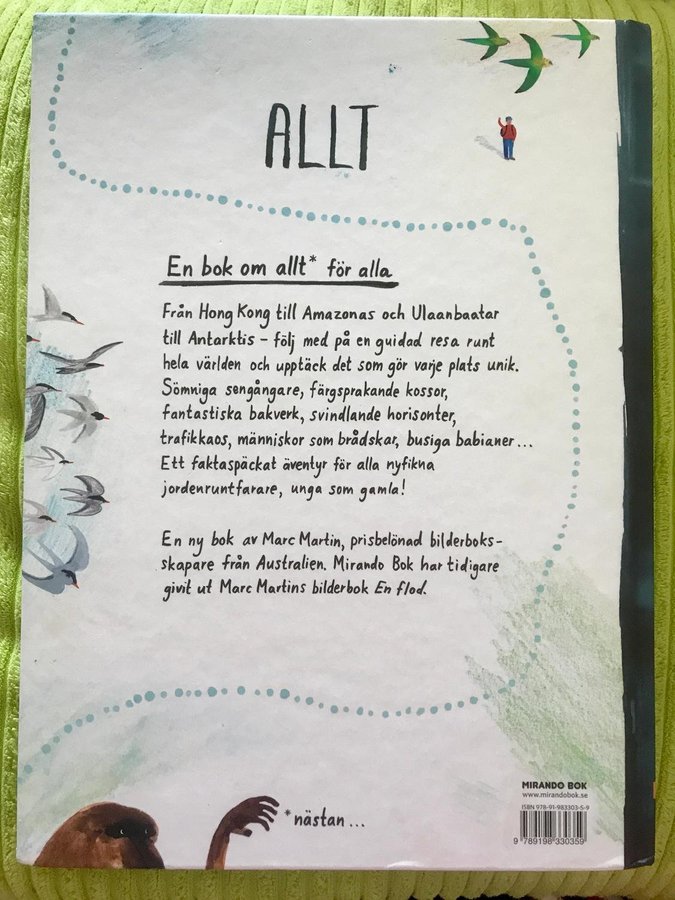 ALLT
En bok om allt* för alla
Från Hong Kong till Amazonas och Ulaanbaatar
till Antarktis – följ med på en guidad resa runt
hela världen och upptäck det som gör varje plats unik.
Sömniga sengångare, färgsprakande kossor,
fantastiska bakverk, svindlande horisonter,
trafikkaos, människor som brådskar, busiga babianer...
Ett faktaspäckat äventyr för alla nyfikna
jordenruntfarare, unga som gamla!
En ny bok av Marc Martin, prisbelönad bilderboks-
skapare från Australien. Mirando Bok har tidigare
givit ut Marc Martins bilderbok En flod.
MIRANDO BOK
www.mirandobok.se
ISBN 978-91-983303-5-9
9 789198 330359
*nästan...